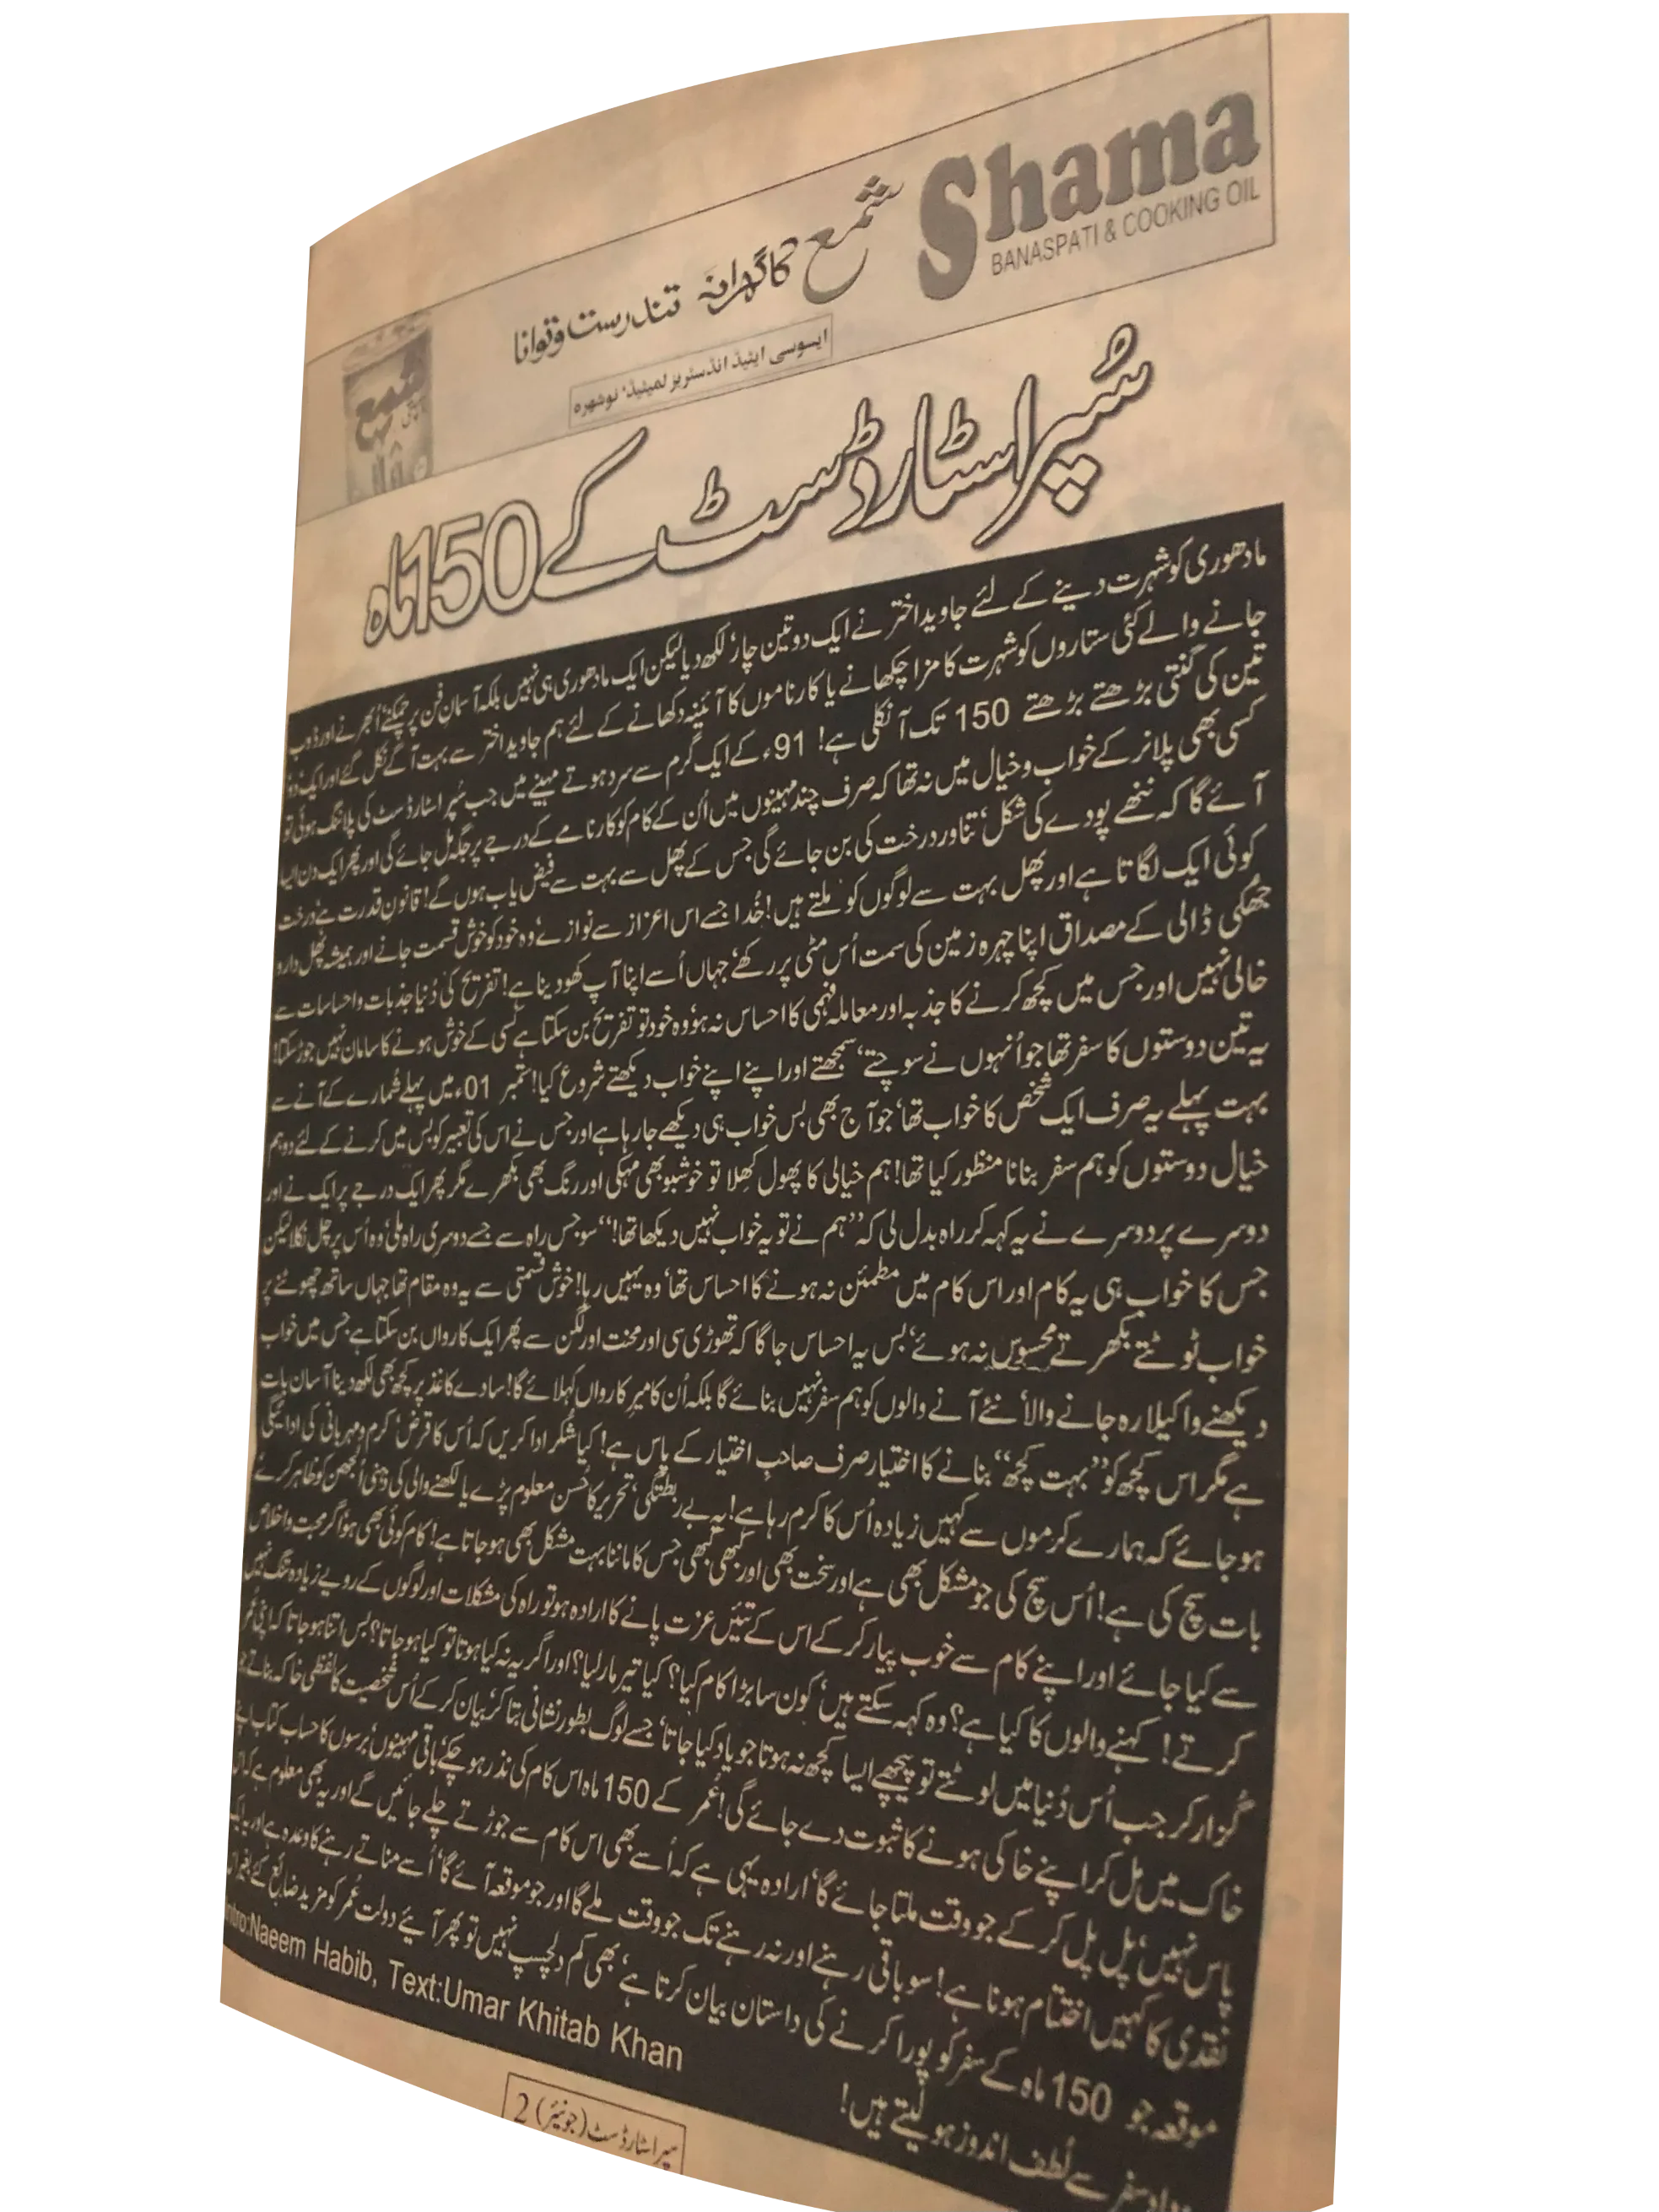 Shama
BANASPATI & COOKING OIL
شمع کا گھرانہ تندرست و توانا
ایسوسی ایٹیڈ انڈسٹریز لمیٹیڈ، نوشہرہ
شمع
سُپر اسٹارڈسٹ کے 150 ماہ
مادھوری کو شہرت دینے کے لئے جاوید اختر نے ایک دو تین چار، لکھ دیا لیکن ایک مادھوری ہی نہیں بلکہ آسمانِ فن پر چمکنے، اُبھرنے اور ڈوب
جانے والے کئی ستاروں کو شہرت کا مزا چکھانے یا کارناموں کا آئینہ دکھانے کے لئے ہم جاوید اختر سے بہت آگے نکل گئے اور ایک، دو،
تین کی گنتی بڑھتے بڑھتے 150 تک آ نکلی ہے! 91ء کے ایک گرم سے سرد ہوتے مہینے میں جب سُپر اسٹارڈسٹ کی پلاننگ ہوئی تو
کسی بھی پلانر کے خواب و خیال میں نہ تھا کہ صرف چند مہینوں میں اُن کے کام کو کارنامے کے درجے پر جگہ مل جائے گی اور پھر ایک دن ایسا
آئے گا کہ ننھے پودے کی شکل، تناور درخت کی بن جائے گی جس کے پھل سے بہت سے فیض یاب ہوں گے! قانونِ قدرت ہے، درخت
کوئی ایک لگاتا ہے اور پھل بہت سے لوگوں کو ملتے ہیں! خُدا جسے اس اعزاز سے نوازے، وہ خود کو خوش قسمت جانے اور ہمیشہ پھل دار و
جُھکی ڈالی کے مصداق اپنا چہرہ زمین کی سمت اُس مٹی پر رکھے، جہاں اُسے اپنا آپ کھو دینا ہے! تفریح کی دُنیا جذبات و احساسات سے
خالی نہیں اور جس میں کچھ کرنے کا جذبہ اور معاملہ فہمی کا احساس نہ ہو، وہ خود تو تفریح بن سکتا ہے، کسی کے خوش ہونے کا سامان نہیں جوڑ سکتا!
یہ تین دوستوں کا سفر تھا جو اُنہوں نے سوچتے، سمجھتے اور اپنے اپنے خواب دیکھتے شروع کیا! ستمبر 01ء میں پہلے شمارے کے آنے سے
بہت پہلے یہ صرف ایک شخص کا خواب تھا، جو آج بھی بس خواب ہی دیکھے جا رہا ہے اور جس نے اس کی تعبیر کو بس میں کرنے کے لئے دو ہم
خیال دوستوں کو ہم سفر بنانا منظور کیا تھا! ہم خیالی کا پھول کھلا تو خوشبو بھی مہکی اور رنگ بھی بکھرے مگر پھر ایک درجے پر ایک نے اور
دوسرے پر دوسرے نے یہ کہہ کر راہ بدل لی کہ ”ہم نے تو یہ خواب نہیں دیکھا تھا!“ سو، جس راہ سے جسے دوسری راہ ملی، وہ اُس پر چل نکلا لیکن
جس کا خواب ہی یہ کام اور اس کام میں مطمئن نہ ہونے کا احساس تھا، وہ یہیں رہا! خوش قسمتی سے یہ وہ مقام تھا جہاں ساتھ چھوٹنے پر
خواب ٹوٹتے بکھرتے محسوس نہ ہوئے، بس یہ احساس جاگا کہ تھوڑی سی اور محنت اور لگن سے پھر ایک کارواں بن سکتا ہے جس میں خواب
دیکھنے والا اکیلا رہ جانے والا، نئے آنے والوں کو ہم سفر نہیں بنائے گا بلکہ اُن کا میرِ کارواں کہلائے گا! سادے کاغذ پر کچھ بھی لکھ دینا آسان بات
ہے مگر اس کچھ کو ”بہت کچھ“ بنانے کا اختیار صرف صاحبِ اختیار کے پاس ہے! کیا شُکر ادا کریں کہ اُس کا قرض، کرم و مہربانی کی ادائیگی
ہو جائے کہ ہمارے کرموں سے کہیں زیادہ اُس کا کرم رہا ہے! یہ بے ربطگی، تحریر کا حُسن معلوم پڑے یا لکھنے والی کی ذہنی اُلجھن کو ظاہر کرے
بات سچ کی ہے! اُس سچ کی جو مشکل بھی ہے اور سخت بھی اور کبھی کبھی جس کا ماننا بہت مشکل بھی ہو جاتا ہے! کام کوئی بھی ہو، اگر محبت و اخلاص
سے کیا جائے اور اپنے کام سے خوب پیار کر کے اس کے تئیں عزت پانے کا ارادہ ہو تو راہ کی مشکلات اور لوگوں کے رویے زیادہ تنگ نہیں
کرتے! کہنے والوں کا کیا ہے؟ وہ کہہ سکتے ہیں، کون سا بڑا کام کیا؟ کیا تیر مار لیا؟ اور اگر یہ نہ کیا ہوتا تو کیا ہو جاتا؟ بس اتنا ہو جاتا کہ اپنی عُمر
گزار کر جب اُس دُنیا میں لوٹتے تو پیچھے ایسا کچھ نہ ہوتا جو یاد کیا جاتا، جسے لوگ بطور نشانی بتا کر، بیان کر کے اُس شخصیت کا لفظی خاکہ بناتے جو
خاک میں مل کر اپنے خاکی ہونے کا ثبوت دے جائے گی! عُمر کے 150 ماہ اس کام کی نذر ہو چکے، باقی مہینوں، برسوں کا حساب کتاب اپنے
پاس نہیں، پل پل کر کے جو وقت ملتا جائے گا، ارادہ یہی ہے کہ اُسے بھی اس کام سے جوڑتے چلے جائیں گے اور یہ بھی معلوم ہے کہ اس
نقدی کا کہیں اختتام ہونا ہے! سو باقی رہنے اور نہ رہنے تک جو وقت ملے گا اور جو موقعہ آئے گا، اُسے مناتے رہنے کا وعدہ ہے اور یہ ایک
موقعہ جو 150 ماہ کے سفر کو پورا کرنے کی داستان بیان کرتا ہے، بھی کم دلچسپ نہیں تو پھر آیئے دولت عُمر کو مزید ضائع کئے بغیر اس
سفر سے لُطف اندوز ہو لیتے ہیں!
Intro:Naeem Habib, Text:Umar Khitab Khan
سپر اسٹارڈسٹ (جونیئر) 2